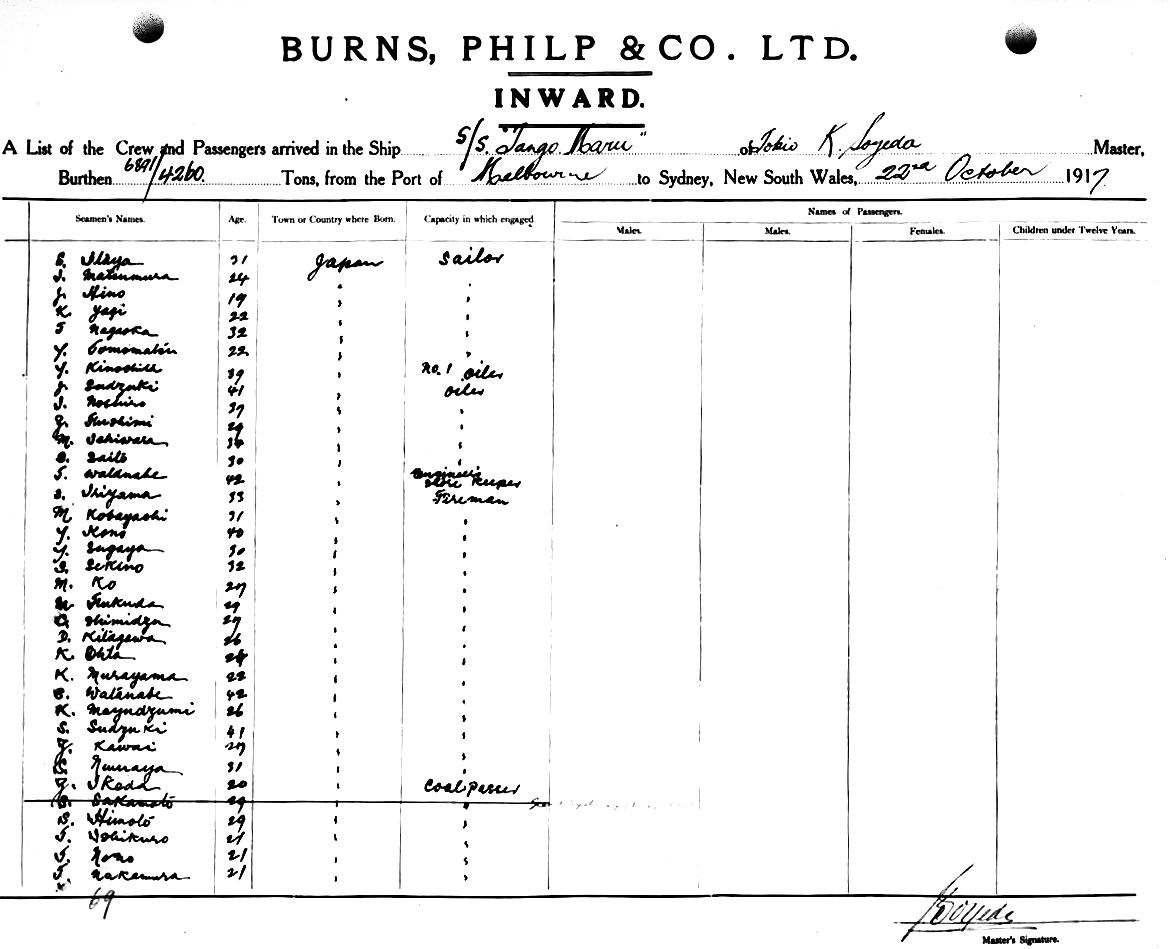 BURNS, PHILP & CO. LTD.
INWARD.
A List of the Crew and Passengers arrived in the Ship S/S. "Tango Maru" of Tokio K. Soyeda Master,
Burthen 6891/4260. Tons, from the Port of Melbourne to Sydney, New South Wales, 22nd October 1917
Names of Passengers.
Seamen's Names. Age. Town or Country where Born. Capacity in which engaged Males. Males. Females. Children under Twelve Years.
31 Japan Sailor
Matsumura 24 " "
J. Hino 19 " "
K. Yagi 22 " "
T Nagaoka 32 " "
Y. Tomomatsu 22 " "
Y. 39 " No. 1 oiler
J. Sudzuki 41 " oiler
Noshiro 37 " "
29 " "
M. Ishiwara " "
Saito 30 " "
T. Watanabe 42 " Engineer's store keeper
S. 33 " Fireman
M Kobayashi 31 " "
Y. Kono 40 " "
Y. Sugaya 30 " "
S. Sekino 32 " "
M. Ko 27 " "
Fukuda 29 " "
Shimidzu 27 " "
D. Kitagawa 26 " "
K. Ohta " "
K. Murayama 22 " "
Watanabe 42 " "
K. Mayudzumi 26 " "
S. Sudzuki 41 " "
Kawai 27 " "
31 " "
Ikeda 20 " Coal passer
S. Sakamoto 29 " "
S. Himoto 29 " "
T. Ishikuro 21 " "
T. Nono 21 " "
T. Nakamura 21 " "
69
Soyeda
Master's Signature.